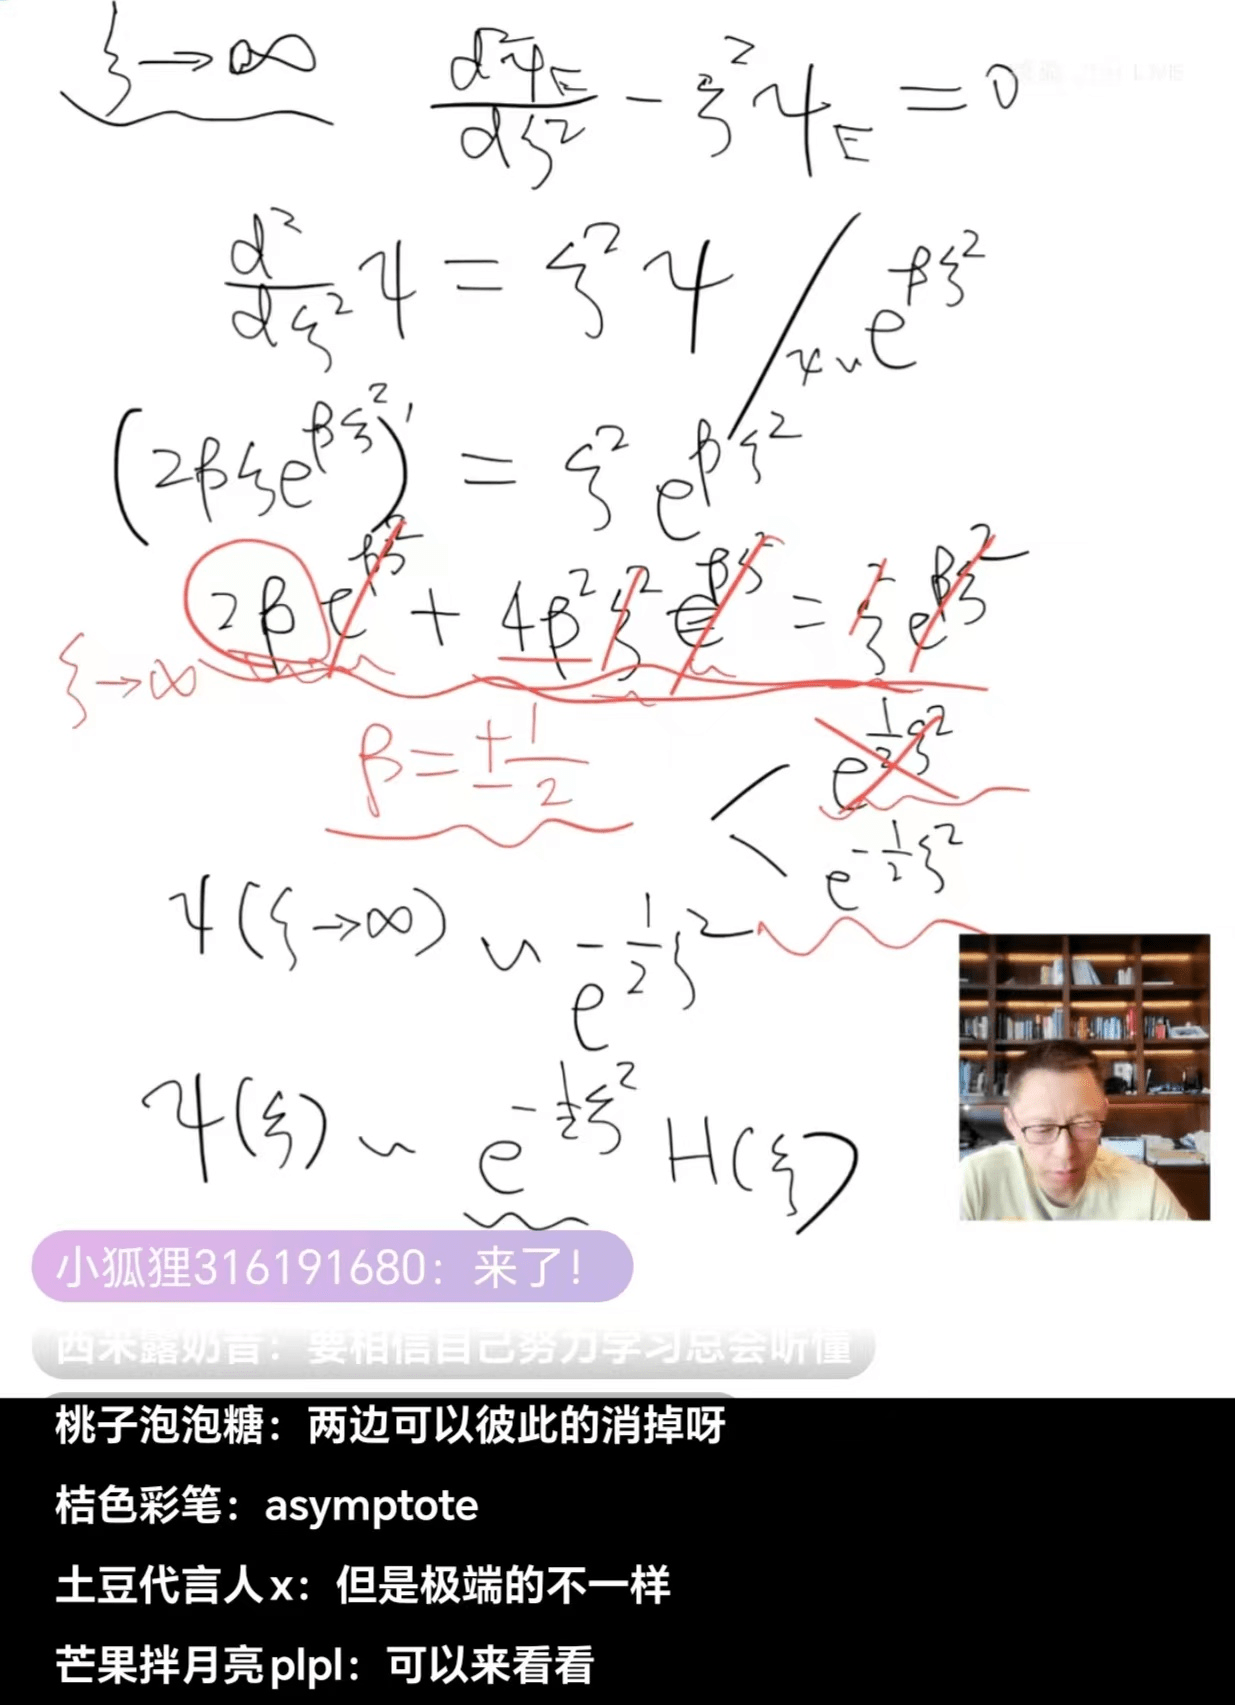 ξ → ∞ d²ψ_E/dξ² − ξ²ψ_E = 0
d²/dξ² ψ = ξ²ψ / ψ ~ e^{βξ²}
(2βξe^{βξ²})' = ξ² e^{βξ²}
2βe^{βξ²} + 4β²ξ²e^{βξ²} = ξ²e^{βξ²}
ξ → ∞
β = ± 1/2 < e^{1/2 ξ²}
e^{−1/2 ξ²}
ψ(ξ → ∞) ~ e^{−1/2 ξ²}
ψ(ξ) ~ e^{−1/2 ξ²} H(ξ)
小狐狸316191680：来了！
西米露奶昔：要相信自己努力学习总会听懂
桃子泡泡糖：两边可以彼此的消掉呀
桔色彩笔：asymptote
土豆代言人x：但是极端的不一样
芒果拌月亮plpl：可以来看看